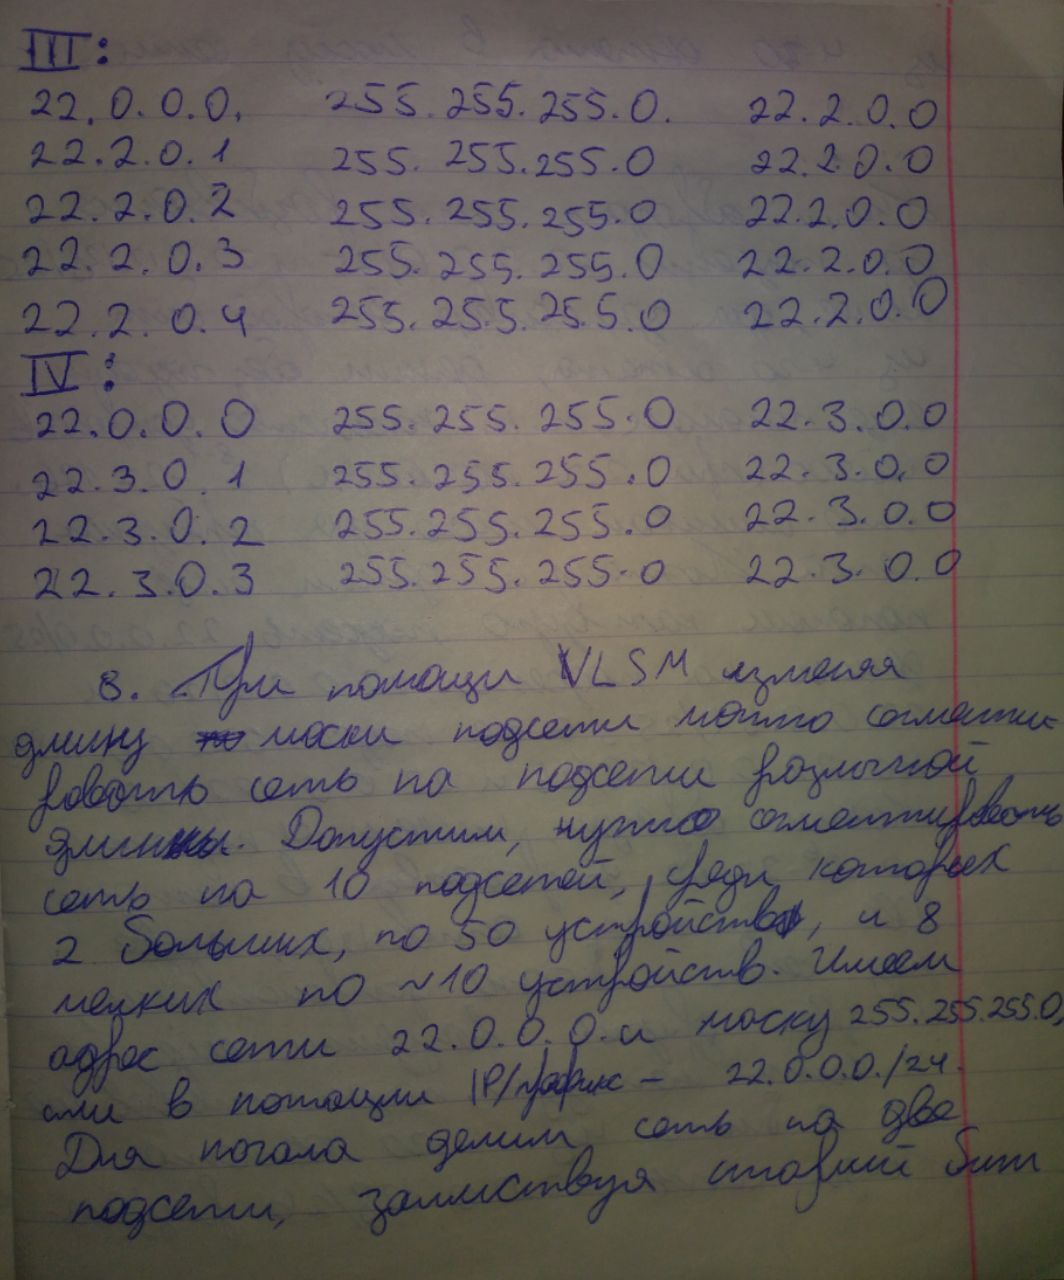 III:
22.0.0.0. 255.255.255.0. 22.2.0.0
22.2.0.1 255.255.255.0 22.2.0.0
22.2.0.2 255.255.255.0 22.2.0.0
22.2.0.3 255.255.255.0 22.2.0.0
22.2.0.4 255.255.255.0 22.2.0.0
IV:
22.0.0.0 255.255.255.0 22.3.0.0
22.3.0.1 255.255.255.0 22.3.0.0
22.3.0.2 255.255.255.0 22.3.0.0
22.3.0.3 255.255.255.0 22.3.0.0
8. При помощи VLSM изменяя
длину маски подсети можно сегменти-
ровать сеть на подсети различной
длины. Допустим, нужно сегментировать
сеть на 10 подсетей, среди которых
2 больших, по 50 устройств, и 8
мелких по ~10 устройств. Имеем
адрес сети 22.0.0.0.и маску 255.255.255.0,
или в нотации IP/префикс - 22.0.0.0./24.
Для начала делим сеть на две
подсети, заимствуя старший бит